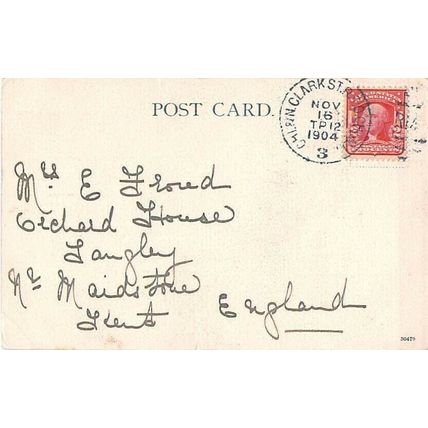 POST CARD.
CHI & N. CLARK ST. R.P.O.
NOV
16
TP 12
1904
3
Mrs E Froud
Orchard House
Langley
Nr Maidstone
Kent
England
30479